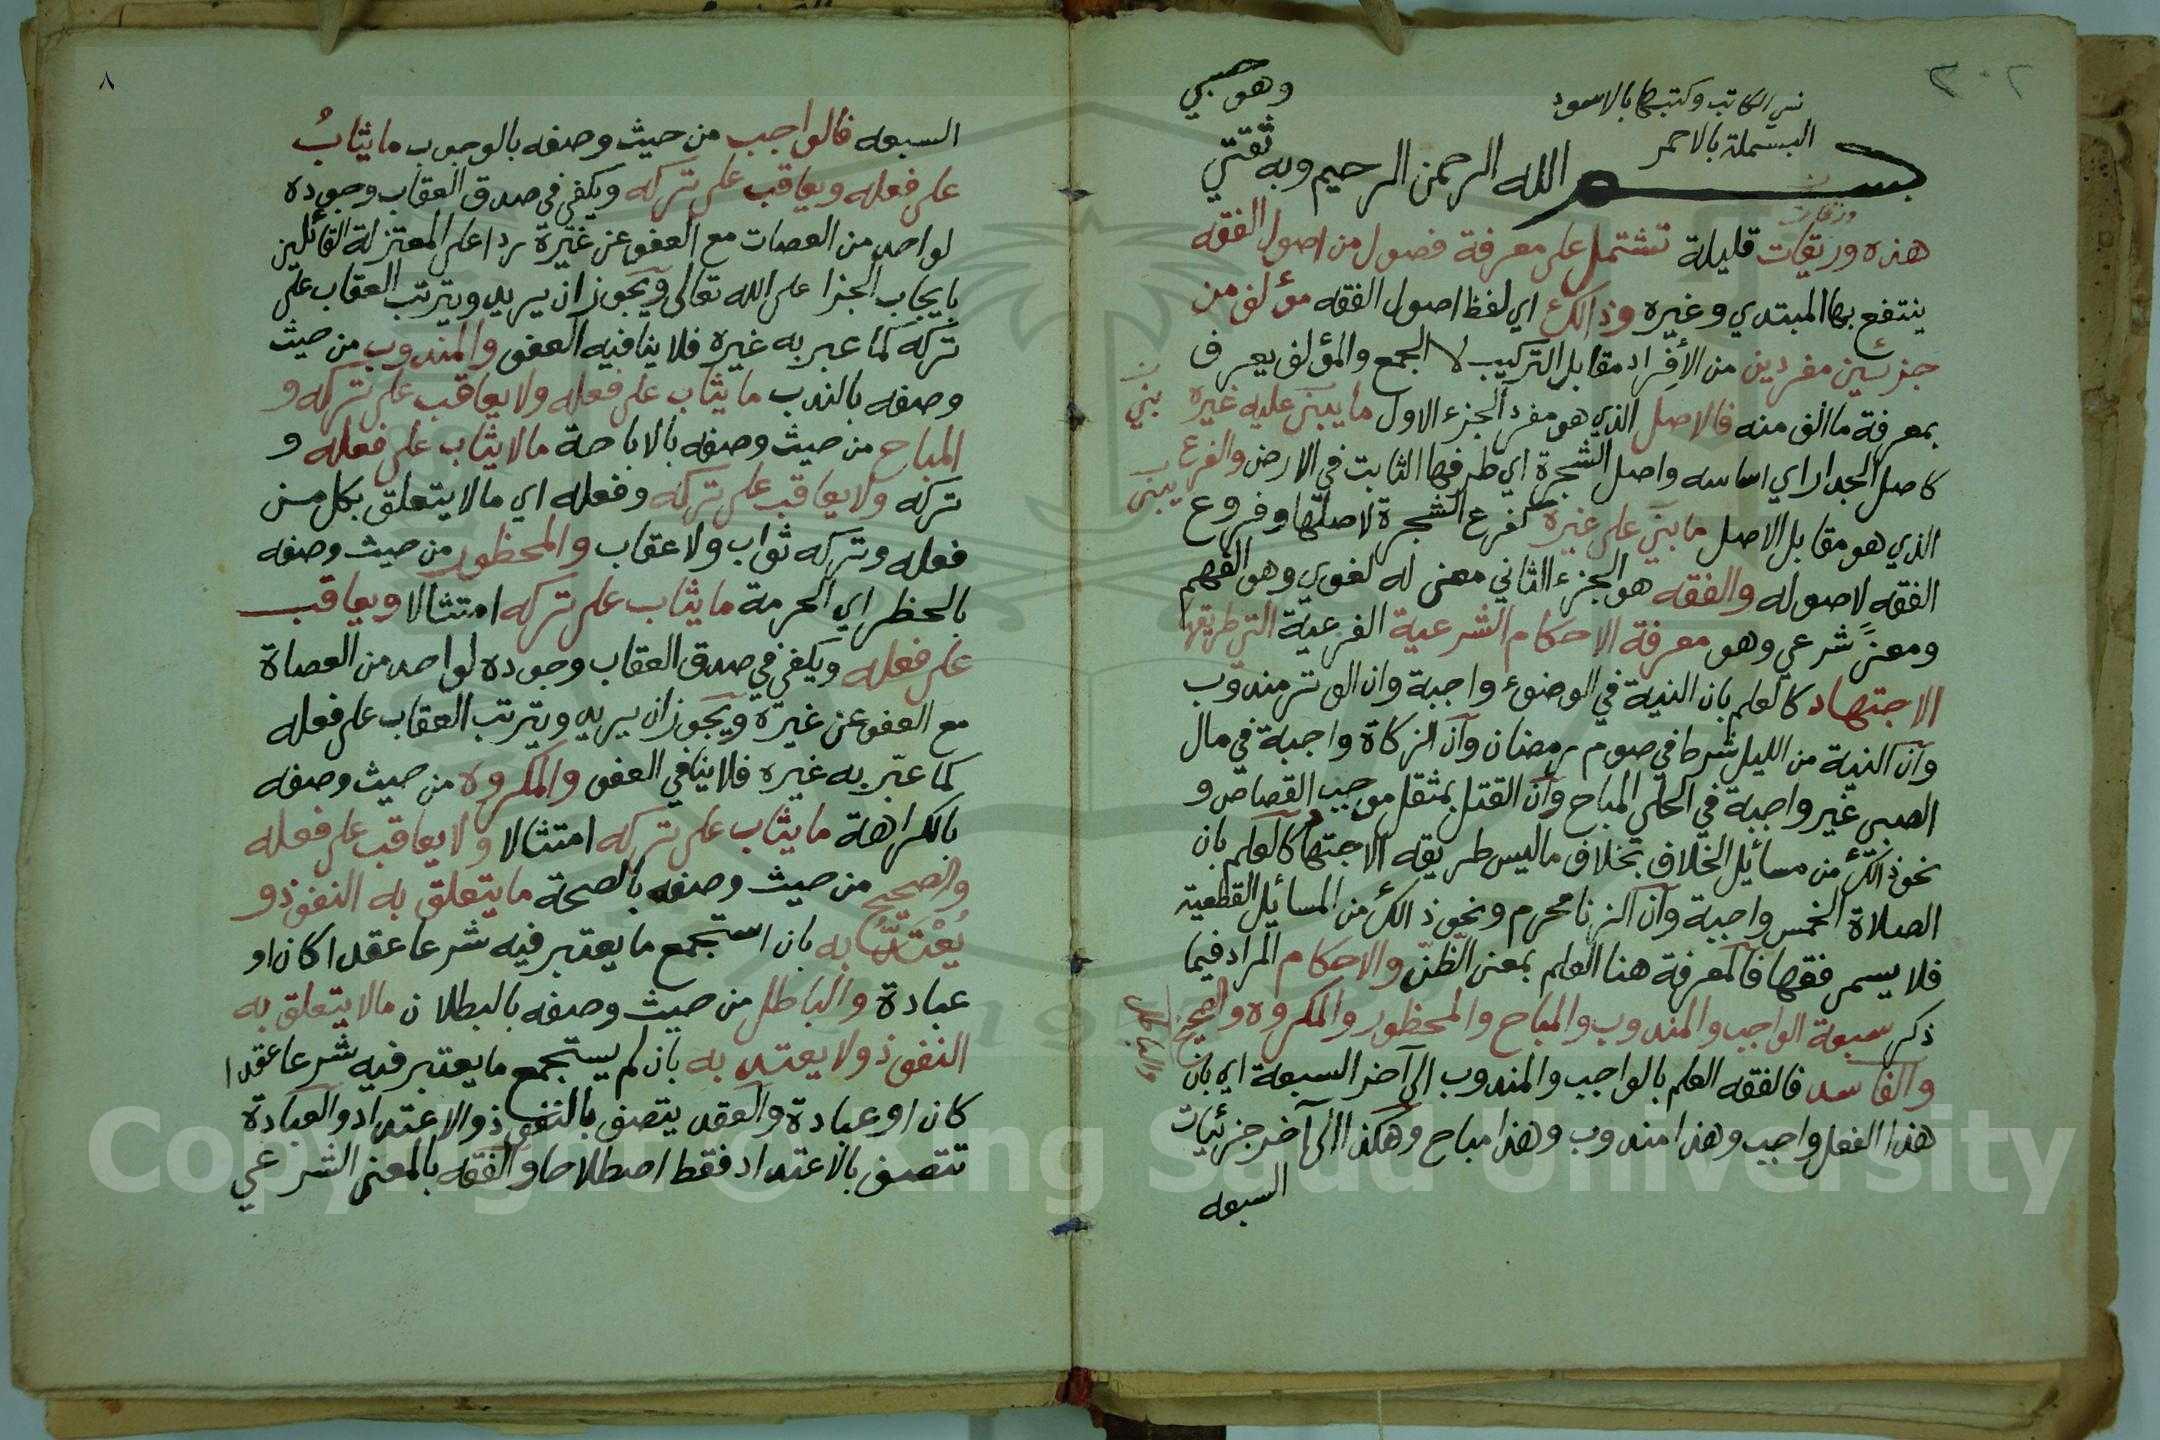 ٢٠٢
نسي الكاتب وكتبها بالاسود
البسملة بالاحمر
وهو حسبي
بسم الله الرحمن الرحيم وبه ثقتي
ورقات
هذه وريقات قليلة تشتمل على معرفة فصول من اصول الفقه
ينتفع بها المبتدي وغيره وذالك اي لفظ اصول الفقه مؤلف من
جزئين مفردين من الأفراد مقابل التركيب لا الجمع والمؤلف يعرف
بمعرفة ما الف منه فالاصل الذي هو مفرد الجزء الاول ما يبنى عليه غيره
بني
كاصل الجدار اي اساسه واصل الشجرة اي طرفها الثابت في الارض والفرع
الذي هو مقابل الاصل ما يبنى على غيره كفرع الشجرة لاصلها وفروع
يبنى
الفقه لاصوله والفقه هو الجزء الثاني معنى له لغوي وهو الفهم
ومعنى شرعي وهو معرفة الاحكام الشرعية الفرعية التي طريقها
الاجتهاد كالعلم بان النية في الوضوء واجبة وان الوتر مندوب
وان النية من الليل شرط في صوم رمضان وان الزكاة واجبة في مال
الصبي غير واجبة في الحلي المباح وان القتل بمثقل موجب القصاص و
نحو ذالك من مسائل الخلاف بخلاف ما ليس طريقه الاجتهاد كالعلم بان
الصلاة الخمس واجبة وان الزنا محرم ونحو ذالك من المسائل القطعية
فلا يسمى فقها فالمعرفة هنا العلم بمعنى الظن والاحكام المراد فيما
ذكر سبعة الواجب والمندوب والمباح والمحظور والمكروه والصحيح
والباطل
والفاسد فالفقه العلم بالواجب والمندوب الى آخر السبعة اي بان
هذا الفعل واجب وهذا مندوب وهذا مباح وهكذا الى آخر جزئيات
السبعه
٨
السبعه فالواجب من حيث وصفه بالوجوب ما يثابُ
على فعله ويعاقب على تركه ويكفي في صدق العقاب وجوده
لواحد من العصات مع العفو عن غيره ردا على المعتزلة القائلين
بايجاب الجزا على الله تعالى ويجوز ان يريد ويترتب العقاب على
تركه كما عبر به غيره فلا ينافيه العفو والمندوب من حيث
وصفه بالندب ما يثاب على فعله ولا يعاقب على تركه و
المباح من حيث وصفه بالاباحة ما لا يثاب على فعله و
تركه ولا يعاقب على تركه وفعله اي ما لا يتعلق بكل من
فعله وتركه ثواب ولا عقاب والمحظور من حيث وصفه
بالحظر اي الحرمة ما يثاب على تركه امتثالا ويعاقب
على فعله ويكفي في صدق العقاب وجوده لواحد من العصاة
مع العفو عن غيره ويجوز ان يريد ويترتب العقاب على فعله
كما عبّر به غيره فلا ينافي العفو والمكروه من حيث وصفه
بالكراهة ما يثاب على تركه امتثالا ولا يعاقب على فعله
والصحيح من حيث وصفه بالصحة ما يتعلق به النفوذ و
يُعْتَدُّ به بان استجمع ما يعتبر فيه شرعا عقدا كان او
عبادة والباطل من حيث وصفه بالبطلان ما لا يتعلق به
النفوذ ولا يعتد به بان لم يستجمع ما يعتبر فيه شرعا عقدا
كان او عبادة والعقد يتصف بالنفوذ والاعتداد والعبادة
تتصف بالاعتداد فقط اصطلاحا والفقه بالمعنى الشرعي
Copyright © King Saud University